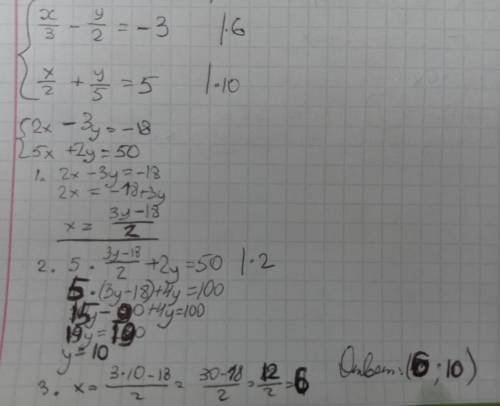 x/3 - y/2 = -3 |·6
x/2 + y/5 = 5 |·10
2x - 3y = -18
5x + 2y = 50
1. 2x - 3y = -18
2x = -18 + 3y
x = (3y-18)/2
2. 5 · (3y-18)/2 + 2y = 50 |·2
5·(3y-18) + 4y = 100
15y - 90 + 4y = 100
19y = 190
y = 10
3. x = (3·10-18)/2 = (30-18)/2 = 12/2 = 6 Ответ: (6; 10)